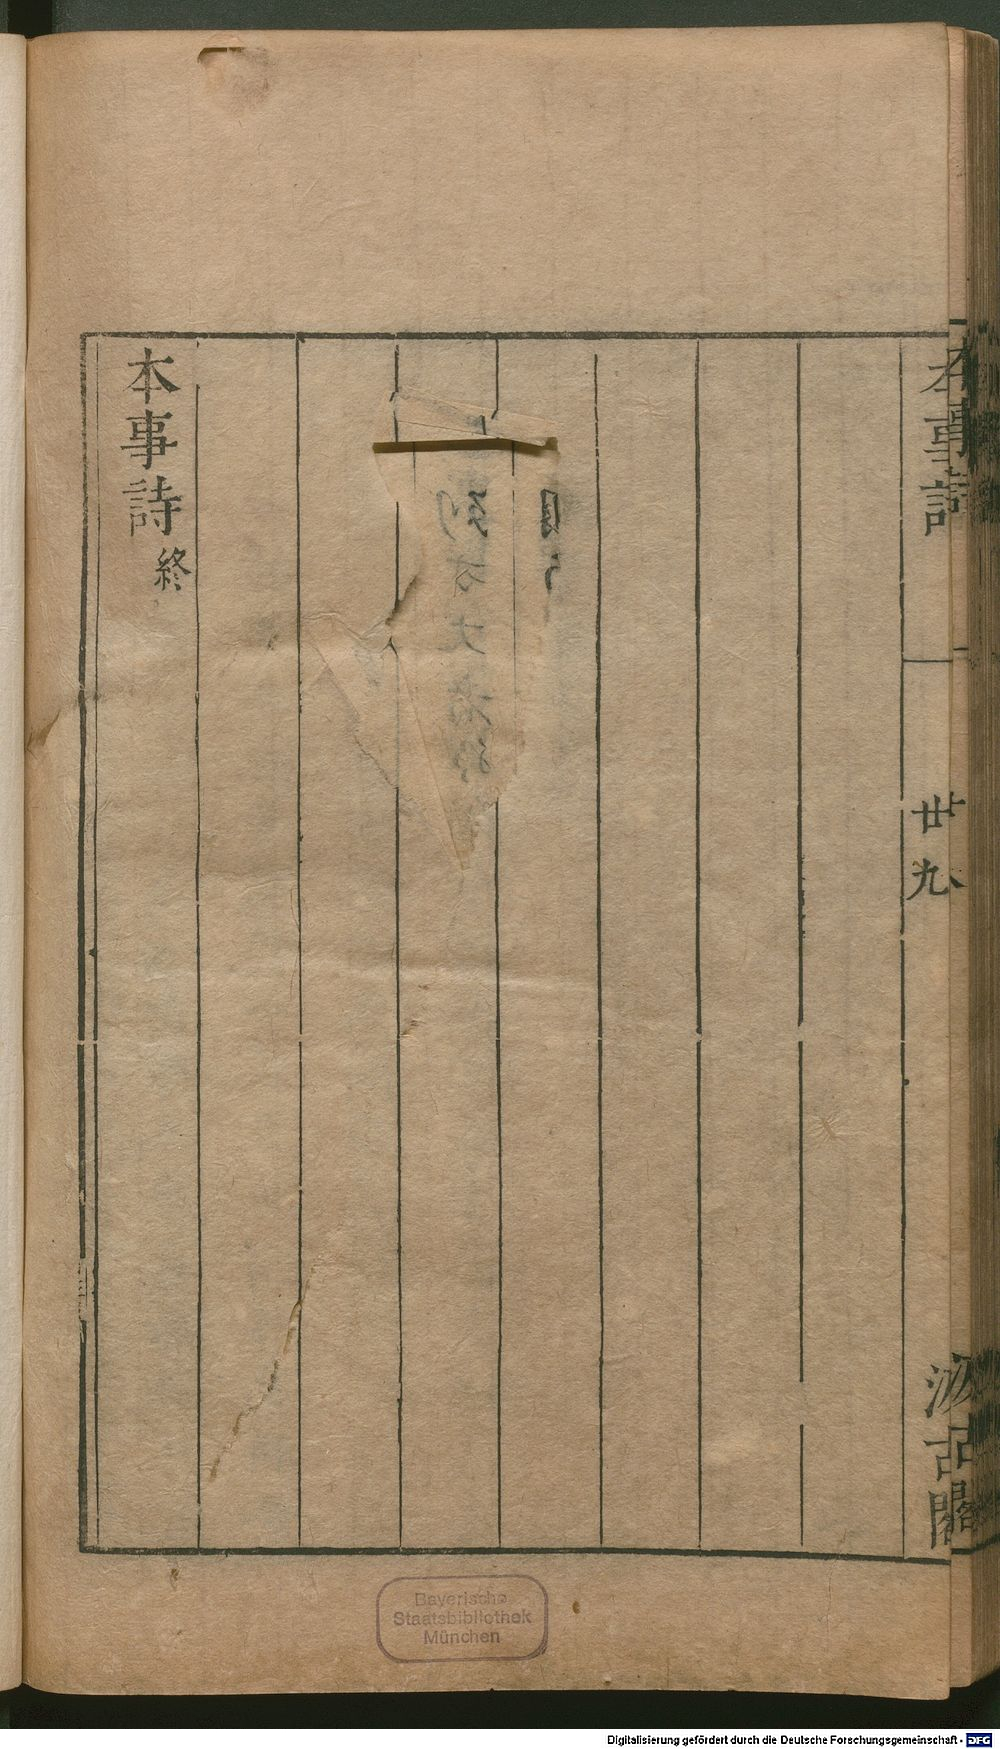 本事詩
卅九
汲古閣
本事詩終
Bayerische
Staatsbibliothek
München
Digitalisierung gefördert durch die Deutsche Forschungsgemeinschaft - DFG